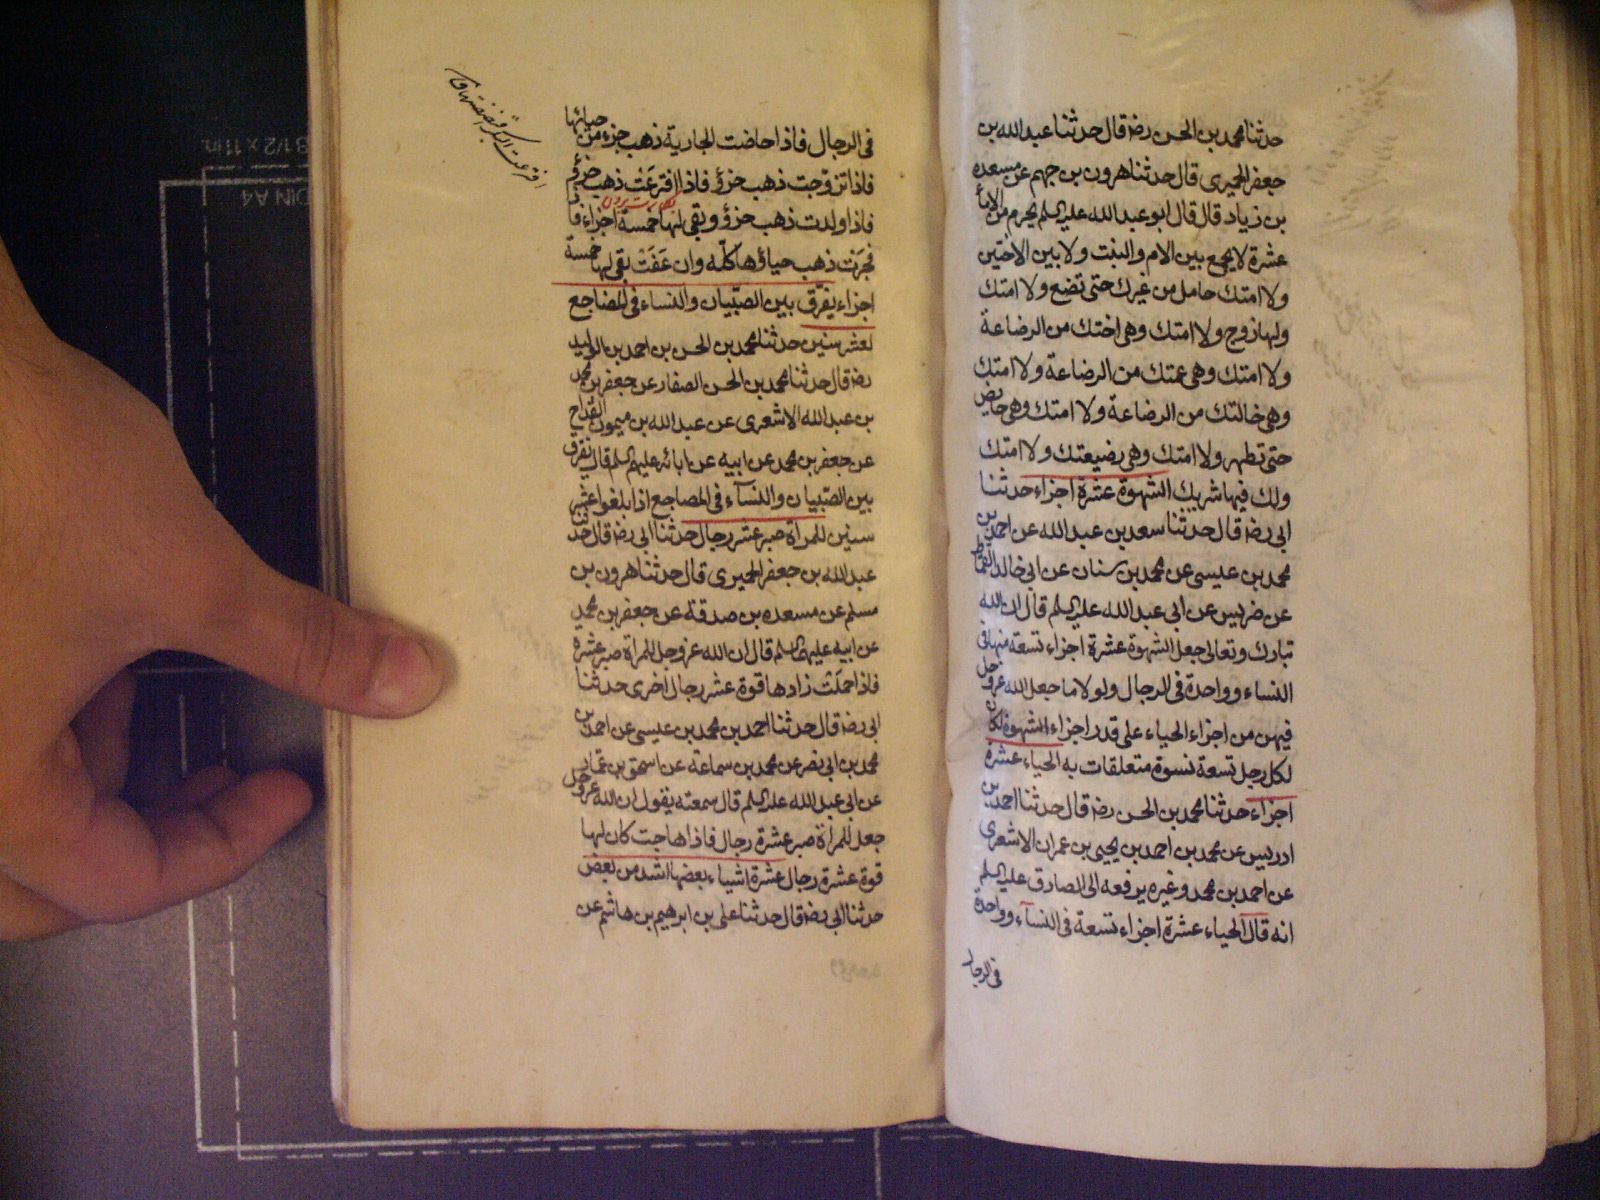 حدثنا محمد بن الحسن رضه قال حدثنا عبد الله بن
جعفر الحميرى قال حدثنا هرون بن جهم عن مسعده
بن زياد قال قال ابو عبد الله عليه السلم يحرم من الاماء
عشرة لا يجمع بين الام والبنت ولا بين الاختين
ولا امتك حامل من غيرك حتى تضع ولا امتك
ولها زوج ولا امتك وهى اختك من الرضاعة
ولا امتك وهى عمتك من الرضاعة ولا امتك
وهى خالتك من الرضاعة ولا امتك وهى حايض
حتى تطهر ولا امتك وهى رضيعتك ولا امتك
ولك فيها شريك الشهوة عشرة اجزاء حدثنا
ابى رضه قال حدثنا سعد بن عبد الله عن احمد بن
محمد بن عيسى عن محمد بن سنان عن ابى خالد القماط
عن ضريس عن ابى عبد الله عليه السلم قال ان الله
تبارك وتعالى جعل الشهوة عشرة اجزاء تسعة منها فى
النساء وواحدة فى الرجال ولولا ما جعل الله عز وجل
فيهن من اجزاء الحياء على قدر اجزاء الشهوة لكان
لكل رجل تسعة نسوة متعلقات به الحياء عشرة
اجزاء حدثنا محمد بن الحسن رضه قال حدثنا احمد بن
ادريس عن محمد بن احمد بن يحيى بن عمران الاشعرى
عن احمد بن محمد وغيره يرفعه الى الصادق عليه السلم
انه قال الحياء عشرة اجزاء تسعة فى النسآء وواحدة
فى الرجال
فى الرجال فاذا حاضت الجارية ذهب جزء من حيائها
فاذا تزوجت ذهب جزؤ فاذا افترعت ذهب جزؤ
فاذا ولدت ذهب جزؤ وبقى لها خمسة اجزاء فان
فجرت ذهب حياؤها كله وان عفت بقى لها خمسة
اجزاء يفرق بين الصبيان والنساء فى المضاجع
لعشر سنين حدثنا محمد بن الحسن بن احمد بن الوليد
رضه قال حدثنا محمد بن الحسن الصفار عن جعفر بن محمد
بن عبد الله الاشعرى عن عبد الله بن ميمون القداح
عن جعفر بن محمد عن ابيه عن ابائه عليهم السلم قال يفرق
بين الصبيان والنسآء فى المضاجع اذا بلغوا عشر
سنين للمراة صبر عشر رجال حدثنا ابى رضه قال حدثنا
عبد الله بن جعفر الحميرى قال حدثنا هرون بن
مسلم عن مسعده بن صدقة عن جعفر بن محمد
عن ابيه عليهما السلم قال ان الله عز وجل للمراة صبر عشرة
فاذا حملت زادها قوة عشر رجال اخرى حدثنا
ابى رضه قال حدثنا احمد بن محمد بن عيسى عن احمد بن
محمد بن ابى نصر عن محمد بن سماعة عن اسحق بن عمار
عن ابى عبد الله عليه السلم قال سمعته يقول ان الله عز وجل
جعل للمراة صبر عشرة رجال فاذا هاجت كان لها
قوة عشرة رجال عشرة اشياء بعضها اشد من بعض
حدثنا ابى رضه قال حدثنا على بن ابرهيم بن هاشم عن